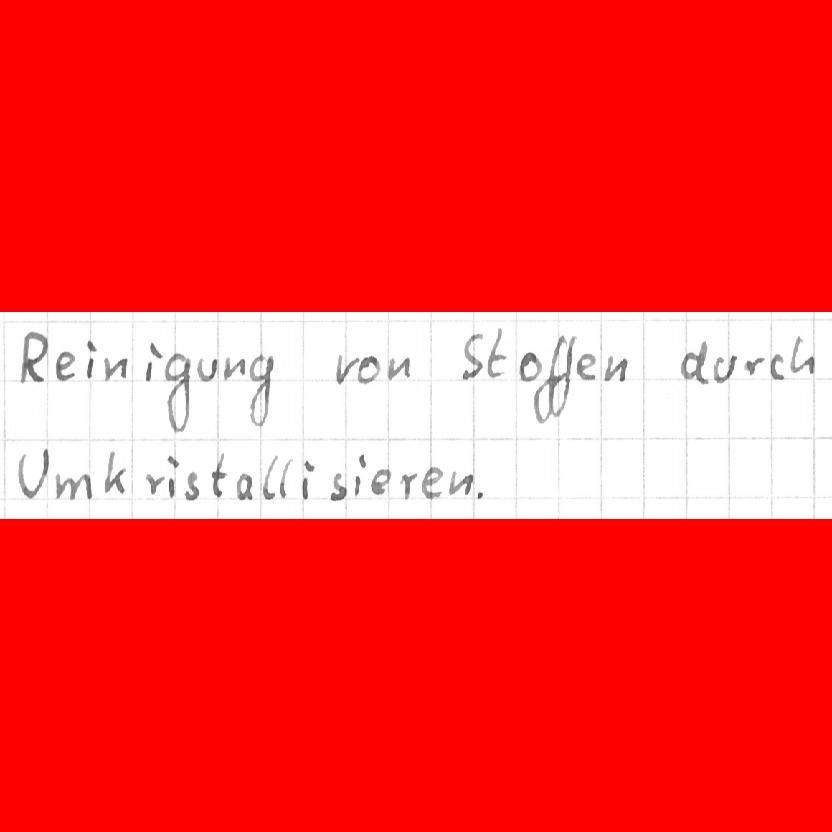 Reinigung von Stoffen durch
Umkristallisieren.